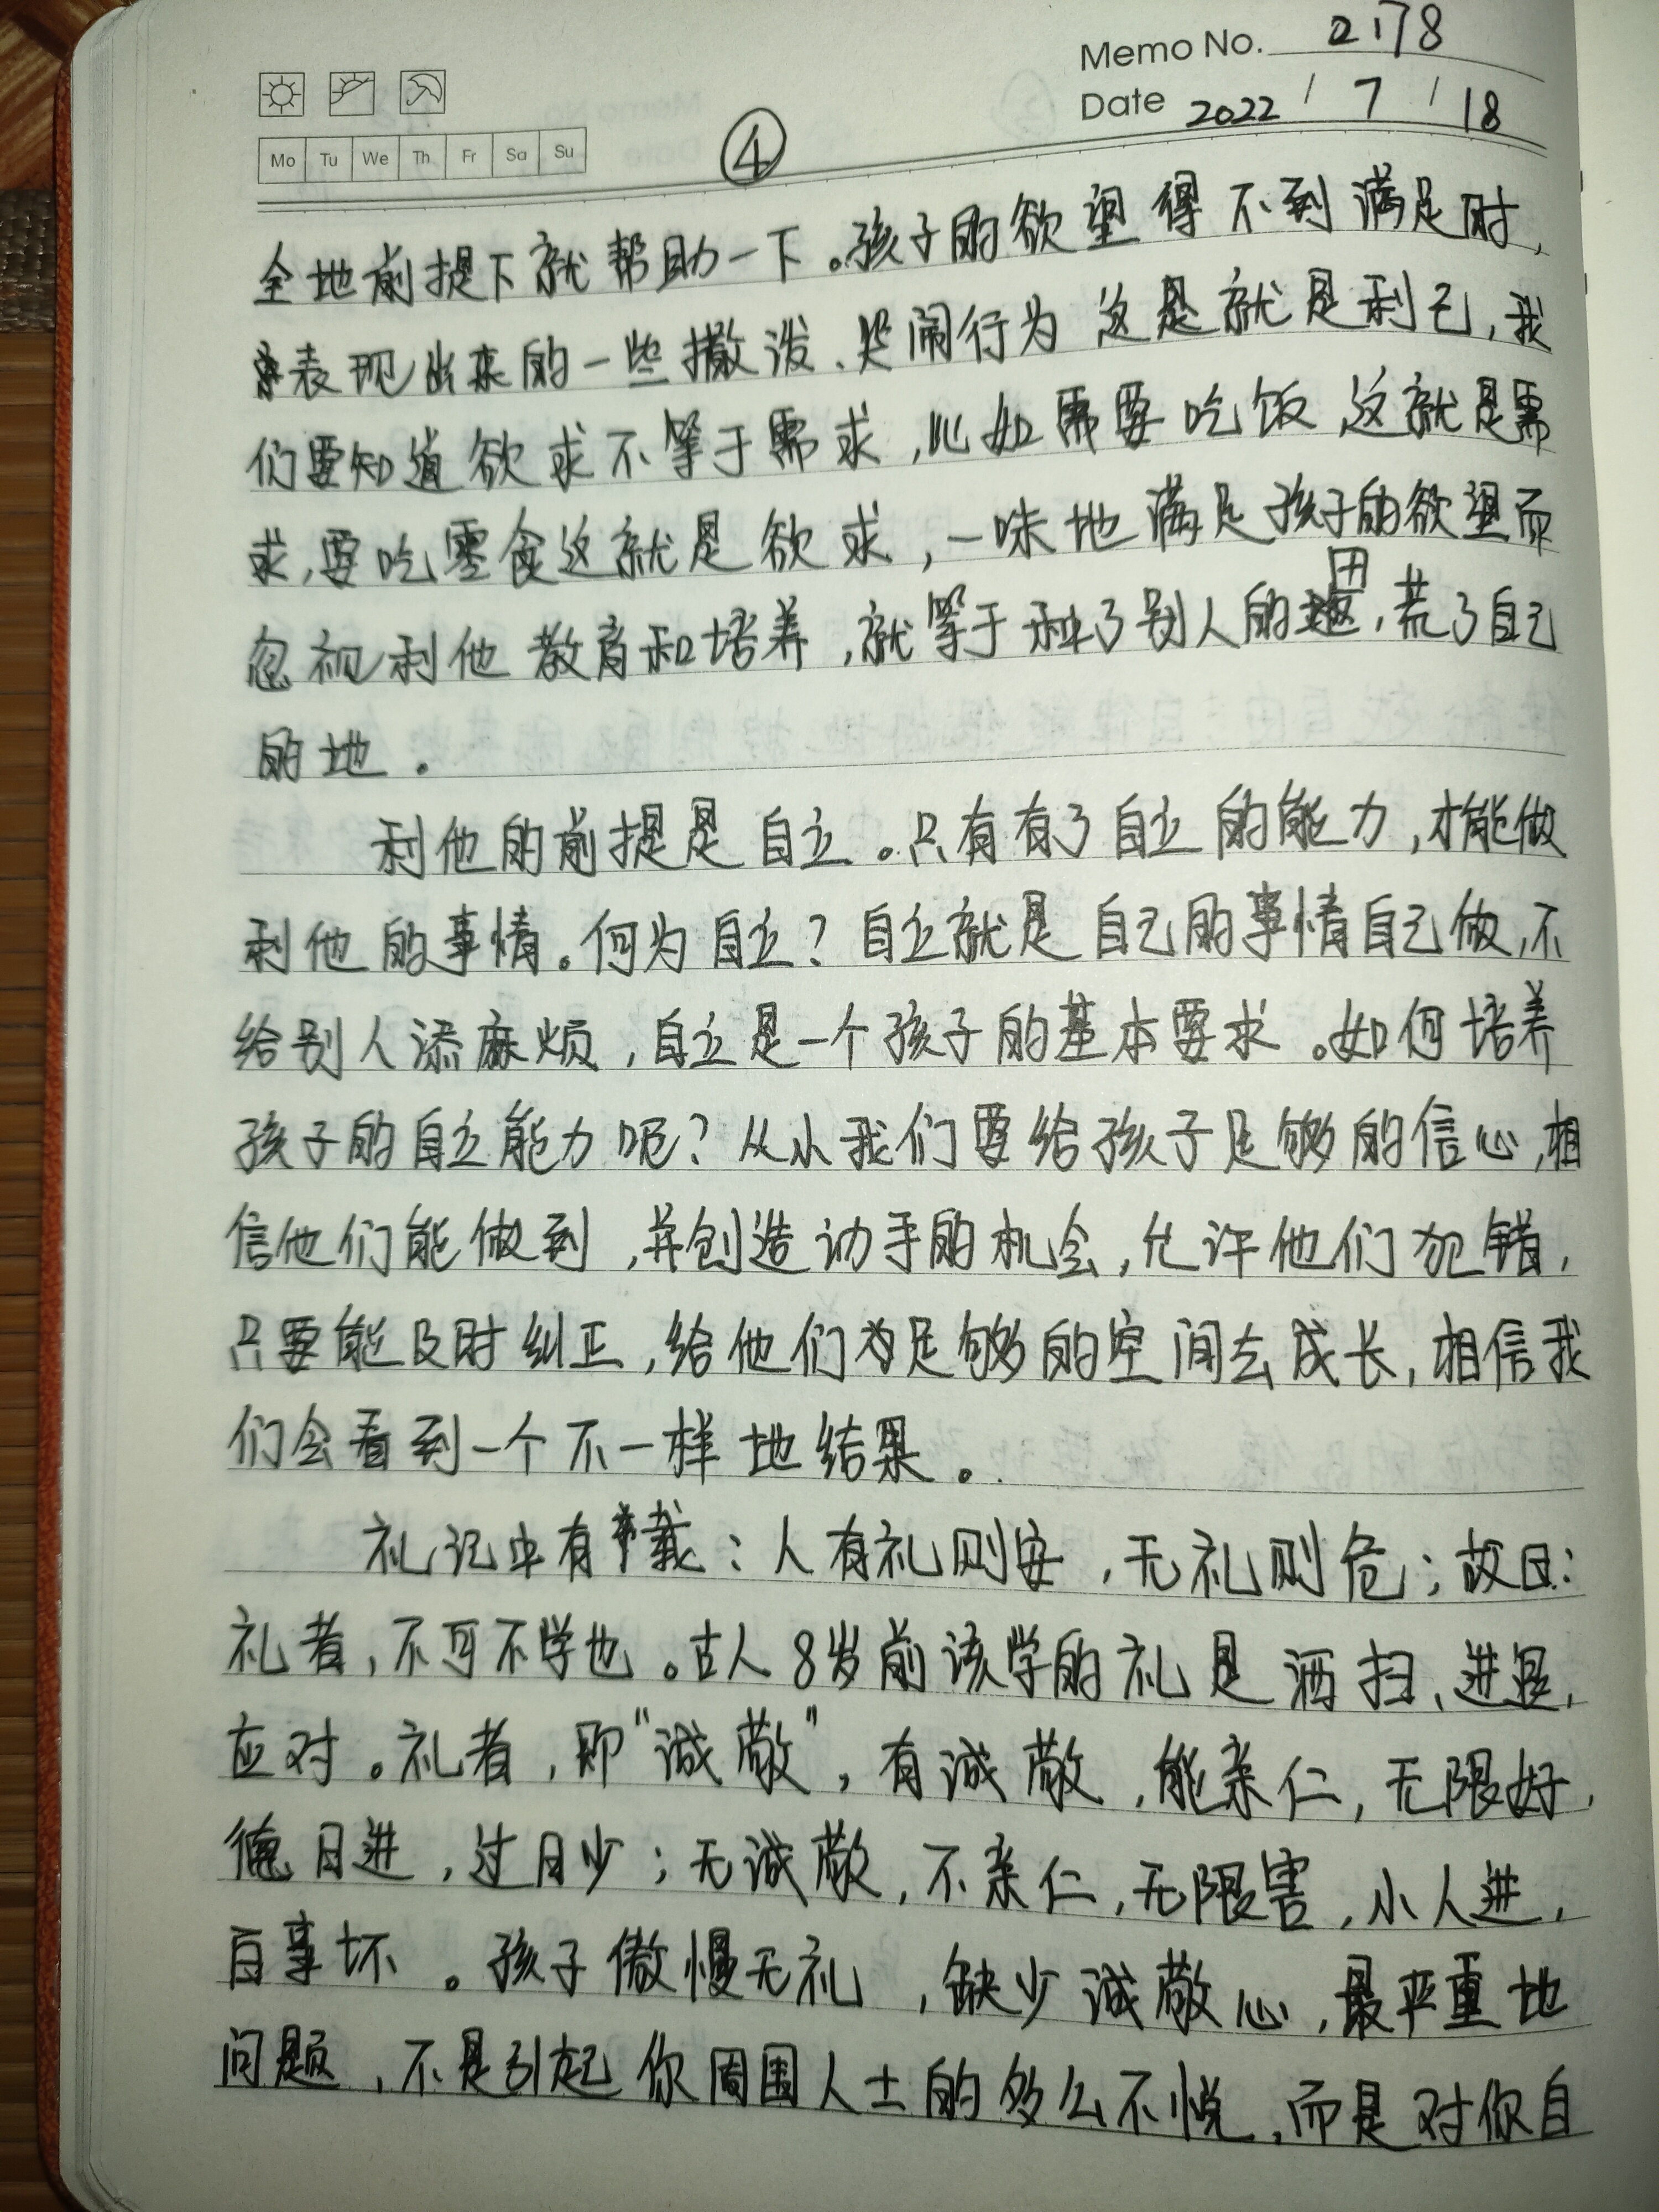 Memo No. 2178
Date 2022 / 7 / 18
Mo Tu We Th Fr Sa Su
④
全地前提下就帮助一下。孩子的欲望得不到满足时,
表现出来的一些撒泼、哭闹行为这是就是利己,我
们要知道欲求不等于需求,比如需要吃饭这就是需
求,要吃零食这就是欲求,一味地满足孩子的欲望而
忽视利他教育和培养,就等于种了别人的田,荒了自己
的地。
利他的前提是自立。只有有了自立的能力,才能做
利他的事情。何为自立?自立就是自己的事情自己做,不
给别人添麻烦,自立是一个孩子的基本要求。如何培养
孩子的自立能力呢?从小我们要给孩子足够的信心,相
信他们能做到,并创造动手的机会,允许他们犯错,
只要能及时纠正,给他们为足够的空间去成长,相信我
们会看到一个不一样地结果。
礼记中有载:人有礼则安,无礼则危;故曰:
礼者,不可不学也。古人8岁前该学的礼是洒扫、进退、
应对。礼者,即“诚敬”,有诚敬,能亲仁,无限好,
德日进,过日少;无诚敬,不亲仁,无限害,小人进,
百事坏。孩子傲慢无礼,缺少诚敬心,最严重地
问题,不是引起你周围人士的多么不悦,而是对你自